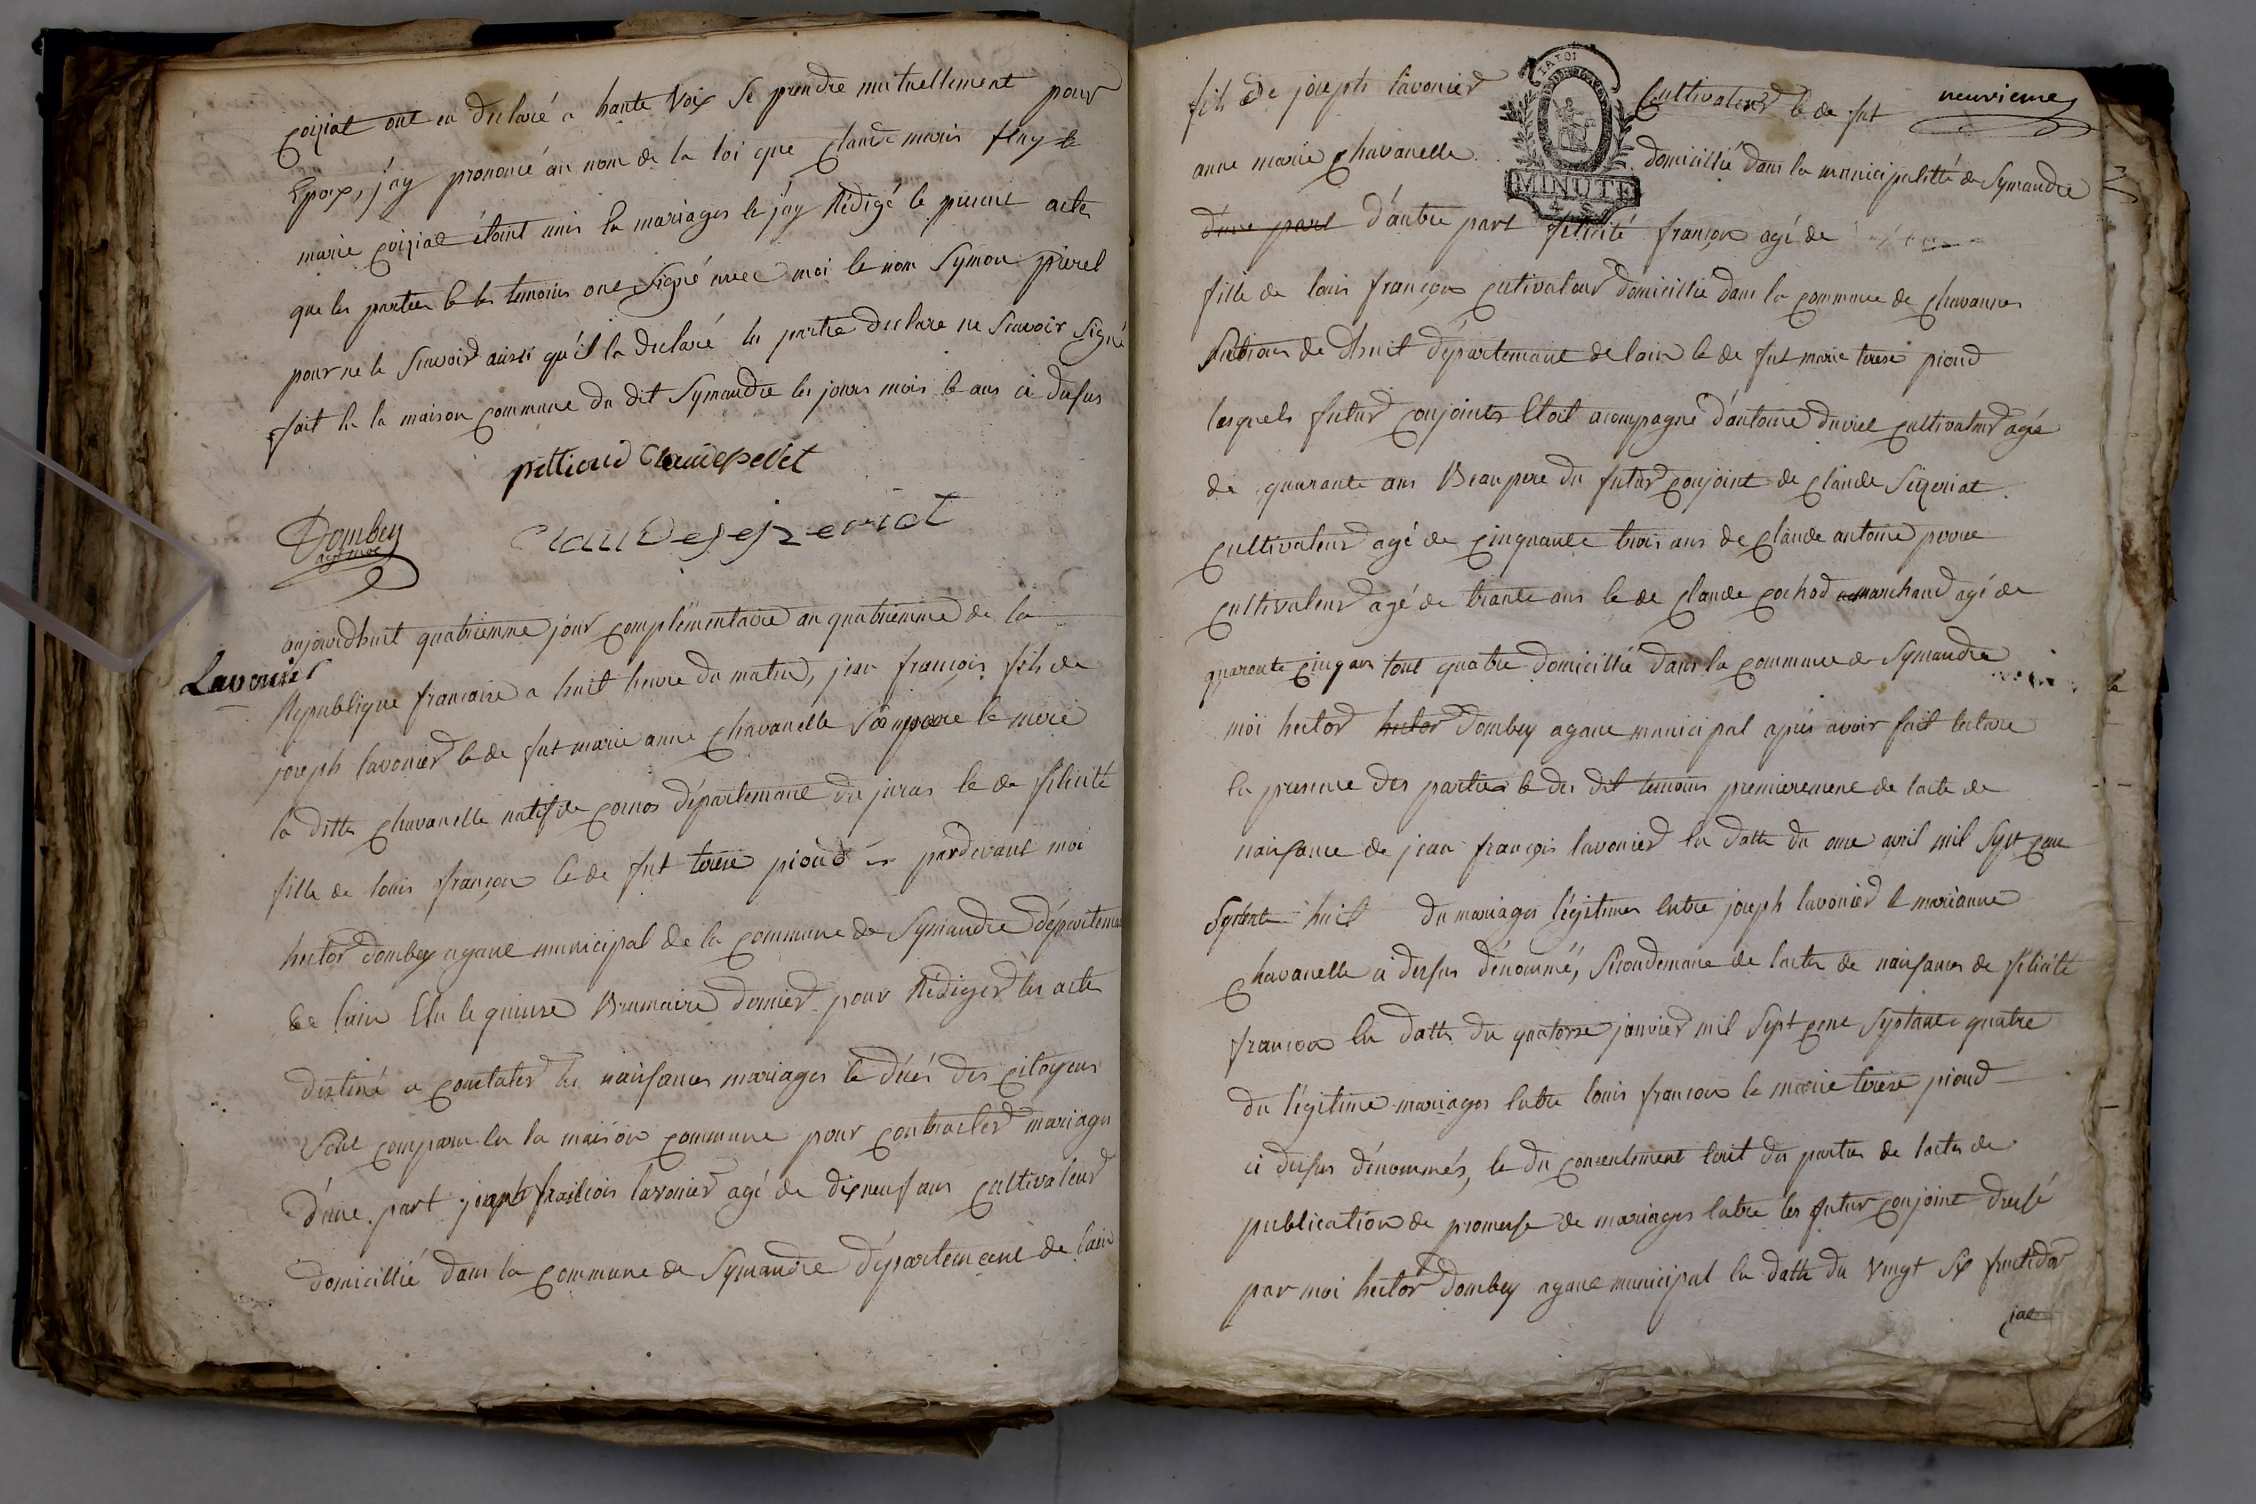 coiziat ont en declaré a haute Voix se prendre mutuellement pour
Epoux, j'ay prononcé au nom de la loi que claude marie flay le
marie coiziat étoint unis En mariages le j'ay Rédigé le present actes
que les parties le les temoins ont signé avec moi le non Symon pierel
pour ne le scavoir ainsi qu'il la declaré les partie declare ne scavoir signé
fait En la maison commune du dit Symandre les jours mois le ans ci dessus
petticord Claude pellet
Dombey
agt mpe Claude sejzeriat
aujourdhuit quatrienme jour complémentaire an quatrienme de la
Lavonier
Republique francaise a huit heure du matin, jean francois fils de
joseph lavonier le de fut marie anne chavanelle Son pere le mere
la ditte chavanelle natif de cornos département du juras le de félicité
fille de louis françon le de fut terese pioud pardevant moi
hector dombey agane municipal de la commune de Symandre départeman
de lain Elu le quinse Brumaire dernier pour Rédiger les actes
destiné a constater les naissances mariages le décés des citoyens
Sont comparu En la maison commune pour contracter mariages
d'une part joseph francois lavonier agé de dixneuf ans cultivateur
domicillié dans la commune de Symandre départemane de lain
neuvieme
fils de joseph lavonier cultivateur le de fut
MINUTE
anne marie chavanelle domicillié dans la municipalitté de Symandre
d'une part d'autre part félicité françon agé de
fille de louis françon cultivateur domicillié dans la commune de chavannes
Section de dhuit départemane de lain le de fut marie terese pioud
lesquels futur conjoints Etoit acompagné d'antoine duviel cultivateur agé
de quarante ans Beaupere du futur conjoint de claude Sezeriat
cultivateur agé de cinquante trois ans de claude antoine perree
cultivateur agé de trante ans le de claude cochod marchand agé de
quarente cinq ans tout quatre domicillié dans la commune de Symandre
moi hector hector dombey agane municipal apres avoir fait lecture
En presence des parties le des dit temoins premieremene de lacte de
naissance de jean françois lavonier En datte du onse avril mil Sept cene
Septente huit du mariages légitimes Entre joseph lavonier le marianne
chavanelle ci dessus dénommé, Secondemane de lactes de naissances de félicité
françon En dattes du quatorse janvier mil Sept cene Septante quatre
du légitime mariages Entre louis françon le marie terese pioud
ci dessus dénommés, le du consentement tout des parties de lactes de
publication de promesse de mariages Entre les futur conjoint dressé
par moi hector dombey agane municipal En datte du Vingt Six fructidor